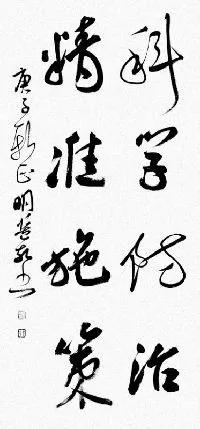 科学防治
精准施策
庚子新正明哲敬书